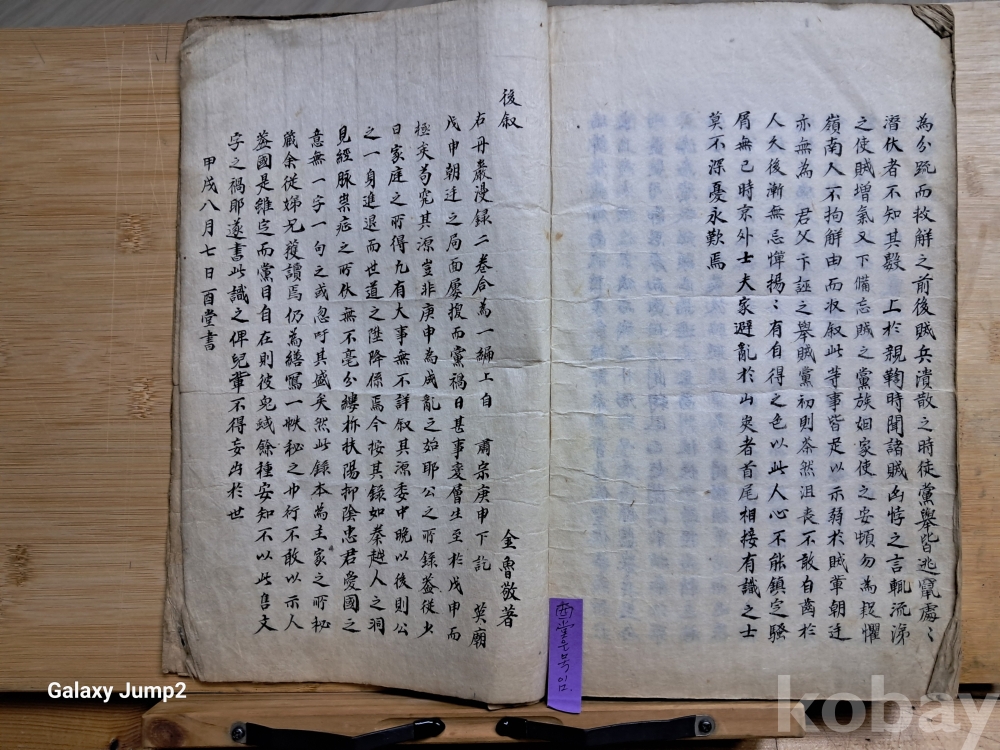 為分疏而救解之前後賊兵潰散之時徒黨舉皆逃竄處〻
潛伏者不知其數 上於親鞫時聞諸賊凶悖之言輒流涕
之使賊增氣又下備忘賊之黨族姻家使之安頓勿為捉懼
嶺南人不拘解由而收叙此等事皆足以示弱於賊軰朝廷
亦無為 君父卞誣之舉賊黨初則茶然沮喪不敢自齒於
人矣後漸無忌憚揚〻有自得之色以此人心不能鎮定騷
屑無已時京外士夫家避亂於山峽者首尾相接有識之士
莫不深憂永歎焉
後叙 金魯敬著
右丹巖漫録二卷合為一編上自 肅宗庚申下訖 英廟
戊申朝廷之局面屢換而黨禍日甚事變層生至於戊申而
極矣苟究其源豈非庚申為成亂之始耶公之所録蓋從少
日家庭之所得凡有大事無不詳叙其源委中晚以後則公
之一身進退而世道之陞降係焉今按其録如秦越人之洞
見經脉祟症之所伏無不毫分縷析扶陽抑陰忠君愛國之
意無一字一句之或忽吁其盛矣然此録本為主家之所秘
藏余從娣兄獲讀焉仍為繕寫一帙秘之巾行不敢以示人
蓋國是雖定而黨目自在則彼 餘種安知不以此售文
字之禍耶遂書此識之俾兒軰不得妄出於世
甲戌八月七日酉堂書
酉堂은 북임.
Galaxy Jump2
kobay